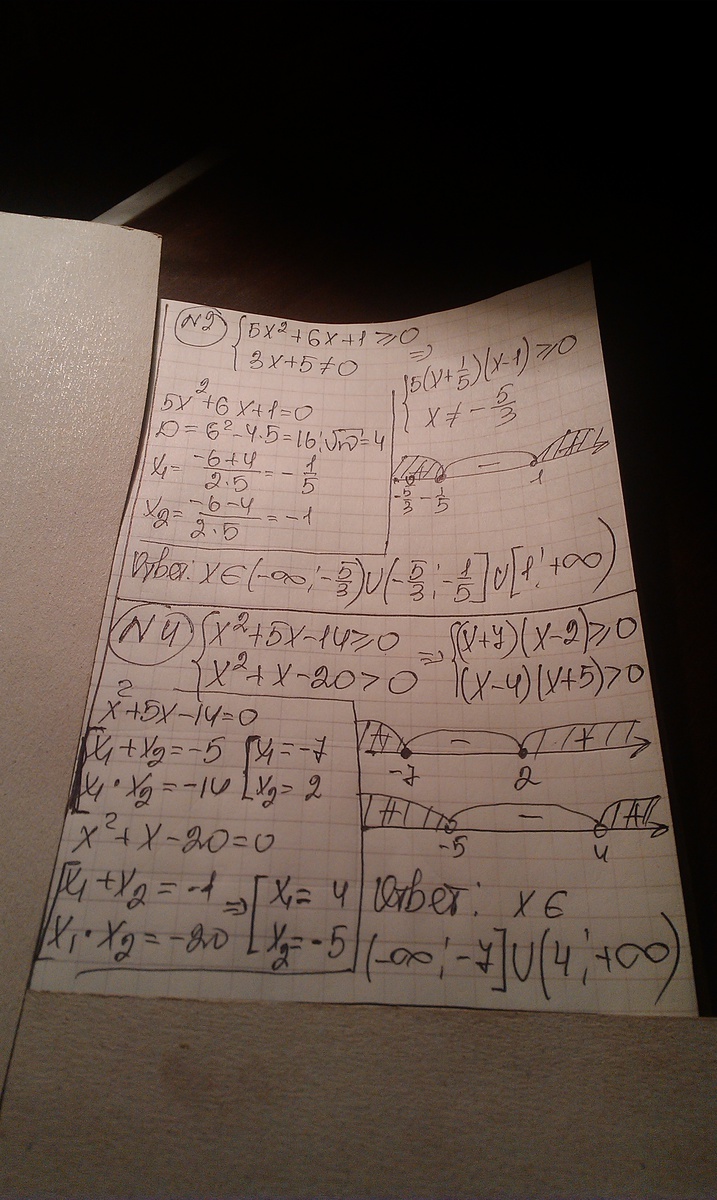 N2 {5x²+6x+1≥0
{3x+5≠0
⇒
{5(x+1/5)(x-1)≥0
{x≠-5/3
5x²+6x+1=0
D=6²-4·5=16; √D=4
x₁=(-6+4)/(2·5)=-1/5
x₂=(-6-4)/(2·5)=-1
+ - +
-5/3 -1/5 1
Ответ: x∈(-∞;-5/3)∪(-5/3;-1/5]∪[1;+∞)
N4 {x²+5x-14≥0
{x²+x-20>0
⇒ {(x+7)(x-2)≥0
{(x-4)(x+5)>0
x²+5x-14=0
[x₁+x₂=-5 [x₁=-7
[x₁·x₂=-14 [x₂=2
x²+x-20=0
[x₁+x₂=-1 ⇒ [x₁=4
[x₁·x₂=-20 [x₂=-5
+ - +
-7 2
+ - +
-5 4
Ответ: x∈
(-∞;-7]∪(4;+∞)